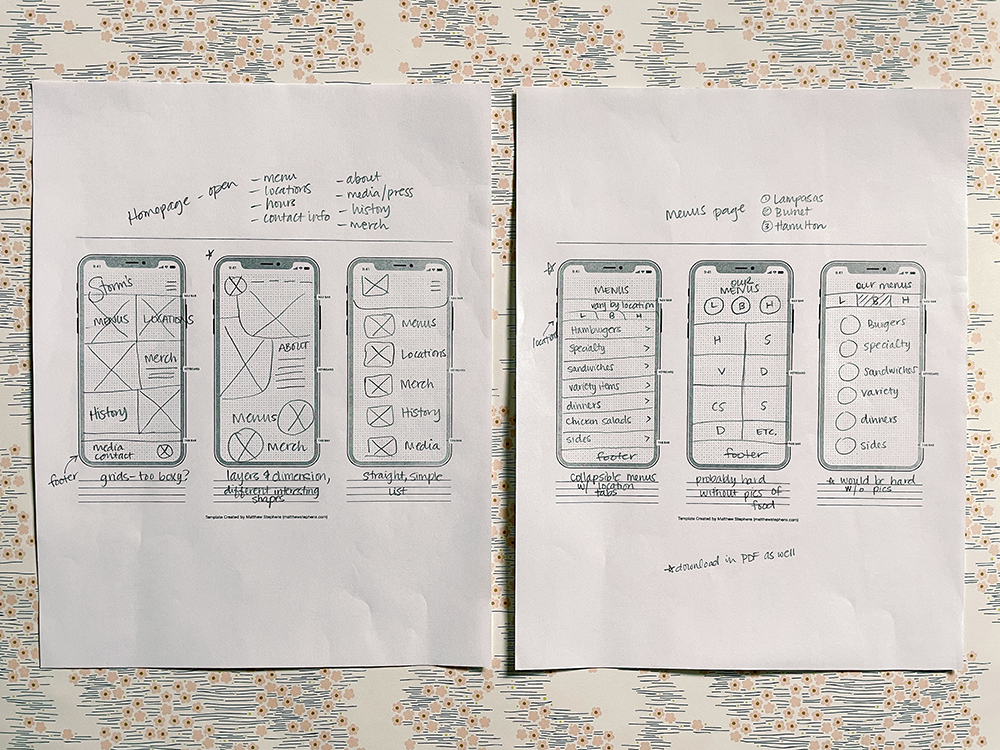 Homepage - open
- menu
- locations
- hours
- contact info
- about
- media/press
- history
- merch
9:41
Storm's
MENUS
LOCATIONS
Merch
History
media
contact
footer
grids - too boxy?
9:41
ABOUT
Menus
Merch
layers & dimension,
different interesting
shapes
9:41
Menus
Locations
Merch
History
Media
straight, simple
list
Template Created by Matthew Stephens (matthewstephens.com)
Menus page
① Lampasas
② Burnet
③ Hamilton
9:41
MENUS
vary by location
L \ B \ H
location
Hamburgers >
Specialty >
sandwiches >
variety items >
dinners >
Chicken salads >
sides >
footer
collapsible menus
w/ location
tabs
9:41
OUR
MENUS
L B H
H S
V D
CS S
D ETC.
footer
probably hard
without pics of
food
9:41
our menus
L B H
Burgers
specialty
sandwiches
variety
dinners
sides
☆ would be hard
w/o pics
Template Created by Matthew Stephens (matthewstephens.com)
☆download in PDF as well